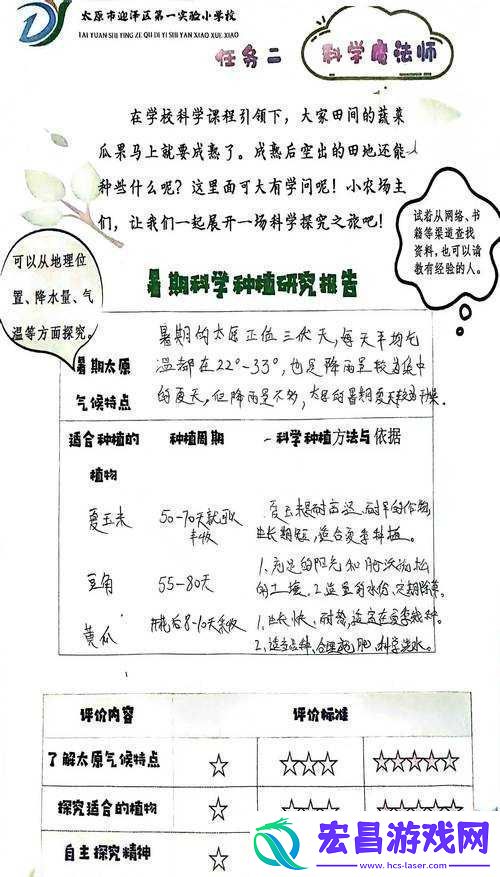 太原市迎泽区第一实验小学校
TAI YUAN SHI YING ZE QU DI YI SHI YAN XIAO XUE XIAO
任务二
科学魔法师
在学校科学课程引领下，大家田间的蔬菜
瓜果马上就要成熟了。成熟后空出的田地还能
种些什么呢？这里面可大有学问呢！小农场主
们，让我们一起展开一场科学探究之旅吧！
试着从网络、书
籍等渠道查找
资料，也可以请
教有经验的人。
可以从地理位
置、降水量、气
温等方面探究。
暑期科学种植研究报告
暑期太原
气候特点
暑期的太原正值三伏天，每天平均气
温都在22°-33°，也是降雨量较为集中
的夏天，但降雨量不多，太原的暑期夏天较为干燥。
适合种植的
植物
种植周期
科学种植方法与依据
夏玉米
50-70天就可以
丰收
夏玉米是耐高温、耐旱的作物，
生长期短，适合夏季种植。
豆角
55-80天
1、充足的阳光和肥沃疏松
的土壤。2、适量的水份，定期除草。
黄瓜
开花后8-10天采收
1、生长快、耐热，适宜在夏季栽种。
2、适当品种、合理施肥、科学浇水。
评价内容
评价标准
了解太原气候特点
☆
☆☆☆
☆☆☆☆☆
探究适合的植物
☆
☆☆☆
☆☆☆☆☆
自主探究精神
☆
宏昌游戏网
www.hcs-laser.com